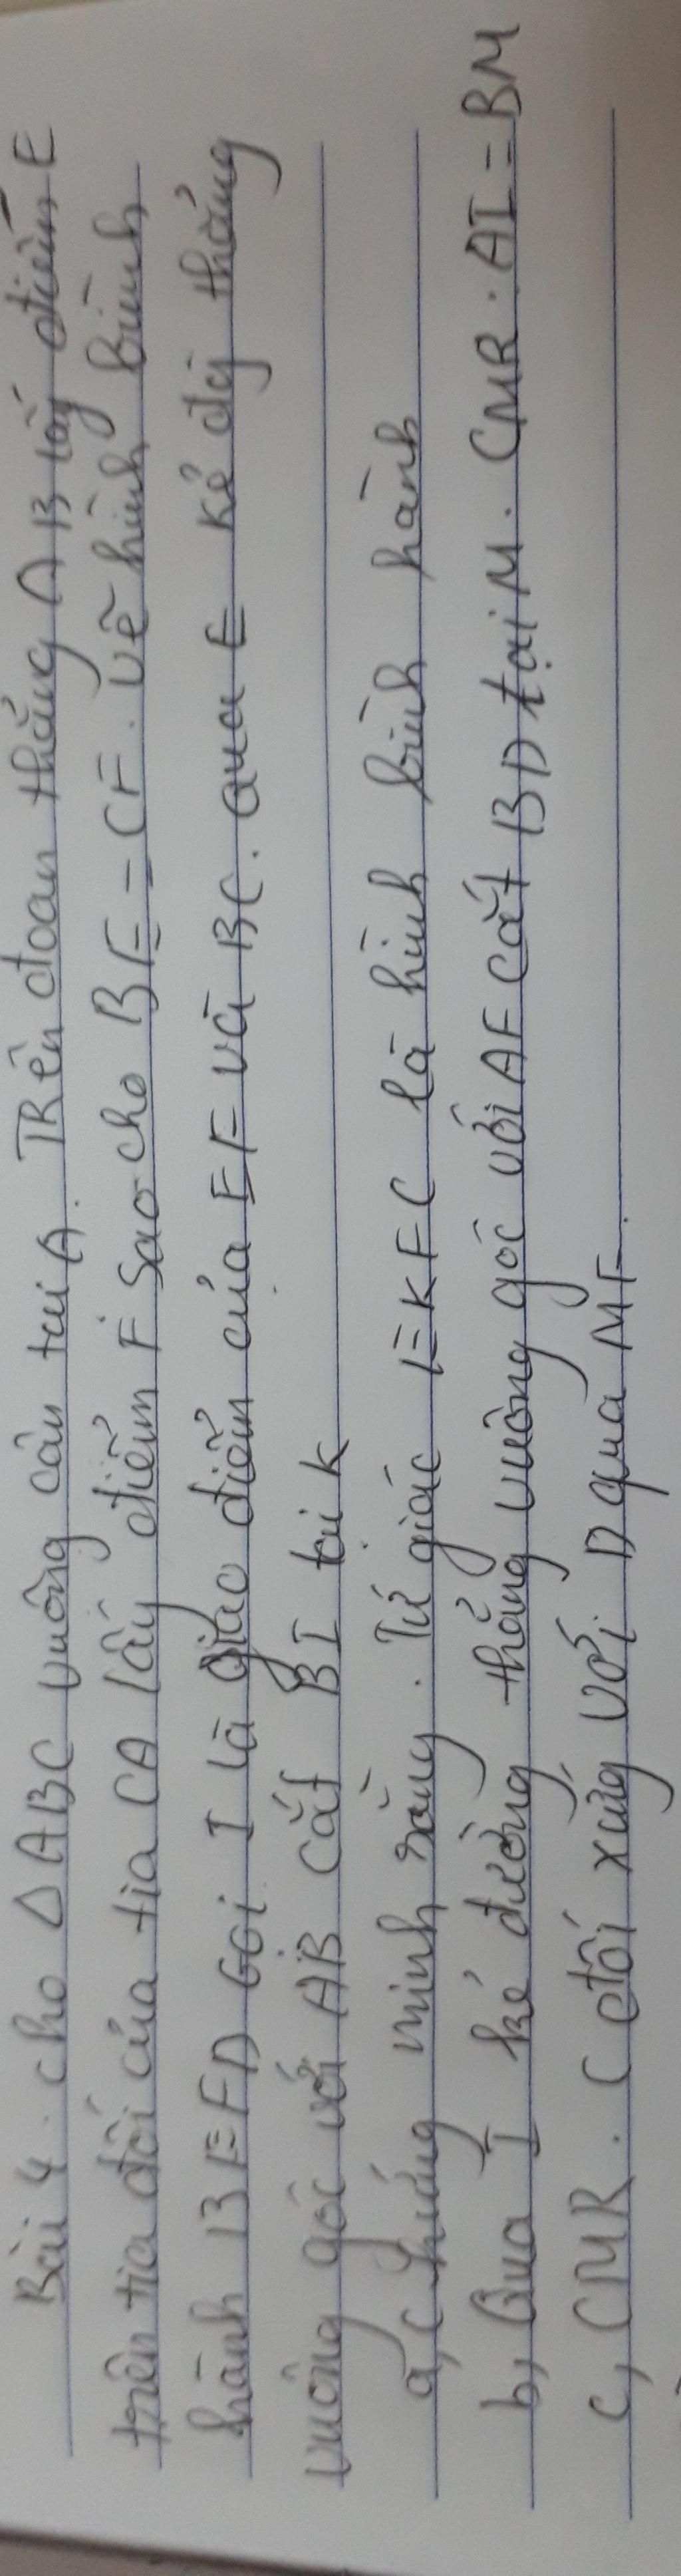 Bài 4. cho △ABC vuông cân tại A. Trên đoạn thẳng AB lấy điểm E
trên tia đối của tia CA lấy điểm F sao cho BE = CF. vẽ hình bình
hành BEFD Gọi I là giao điểm của EF và BC. qua E kẻ đg thẳng
vuông góc với AB cắt BI tại K
a, chứng minh rằng. Tứ giác EKFC là hình bình hành
b, Qua I kẻ đường thẳng vuông góc với AF cắt BD tại M. CMR. AI = BM
c, CMR. C đối xứng với D qua MF.